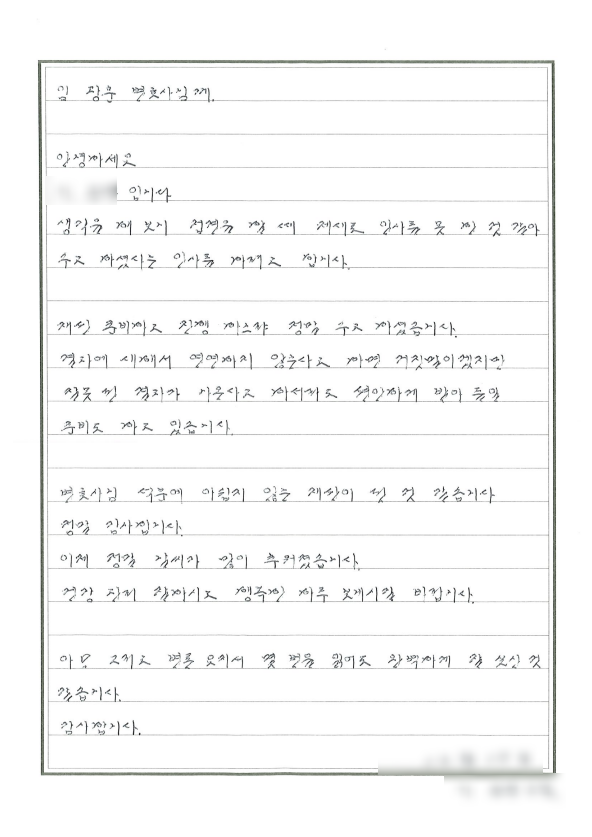 임 광훈 변호사님께.
안녕하세요
입니다
생각을 해 보니 접견을 할 때 제대로 인사를 못 한 것 같아
수고 하셨다는 인사를 하려고 합니다.
재판 준비하고 진행 하느라 정말 수고 하셨습니다.
결과에 대해서 연연하지 않는다고 하면 거짓말이겠지만
잘못 된 결과가 나온다고 하더라도 편안하게 받아 들일
준비도 하고 있습니다.
변호사님 덕분에 아쉽지 않은 재판이 된 것 같습니다
정말 감사합니다.
이제 정말 날씨가 많이 추워졌습니다.
건강 관리 잘하시고 행복한 하루 보내시길 바랍니다.
아 참 그리고 변론 요지서 몇 번을 읽어도 완벽하게 잘 쓰신 것
같습니다.
감사합니다.